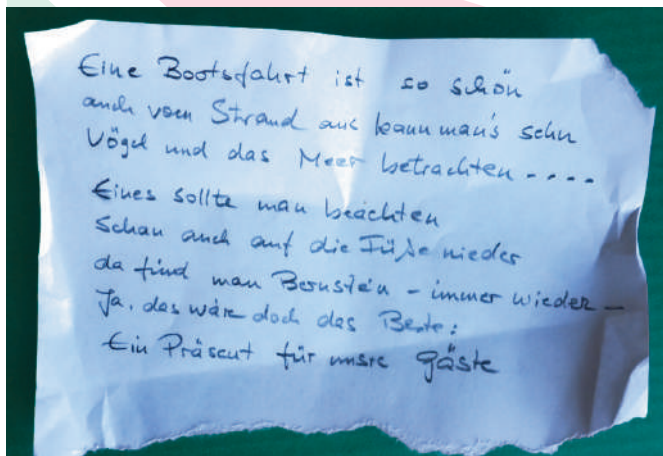 Eine Bootsfahrt ist so schön
auch vom Strand aus kann man's sehn
Vögel und das Meer betrachten - - - -
Eines sollte man beachten
Schau auch auf die Füße nieder
da find man Bernstein - immer wieder -
Ja, das wäre doch das Beste:
Ein Präsent für unsre Gäste